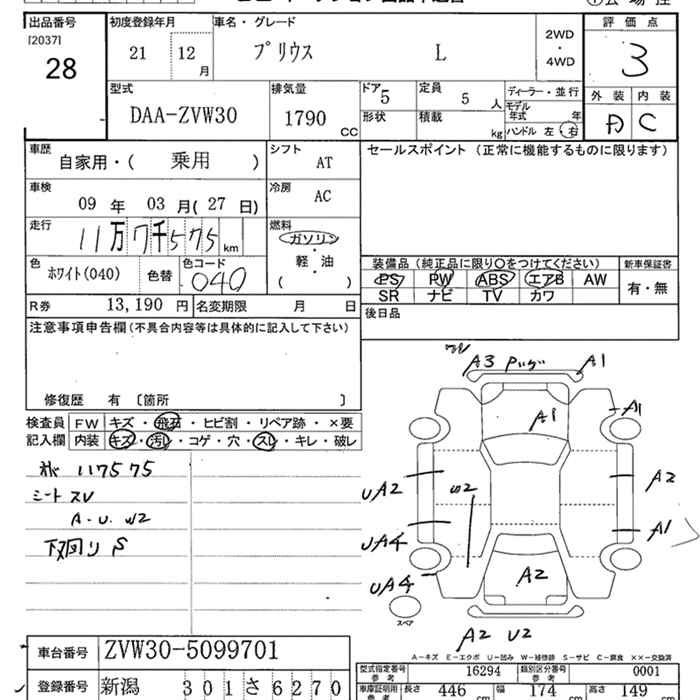 出品番号
[2037]
28
初度登録年月
21 12月
車名・グレード
プリウス L
2WD
・
4WD
評価点
3
外装 内装
A C
型式
DAA-ZVW30
排気量
1790 cc
ドア 5
定員 5 人
形状
積載 kg
ディーラー・並行
モデル年式 年
ハンドル 左・右
車歴
自家用・( 乗用 )
シフト
AT
車検
09 年 03 月( 27 日)
冷房
AC
走行
11万7千575 km
燃料
ガソリン
軽・油
( )
色
ホワイト(040)
色替
色コード
040
R券 13,190 円
名変期限 月 日
セールスポイント (正常に機能するものに限ります)
装備品 (純正品に限り○をつけてください)
PS PW ABS エアB AW
SR ナビ TV カワ
新車保証書
有・無
後日品
注意事項申告欄(不具合内容等は具体的に記入して下さい)
修復歴 有 〔箇所 〕
検査員記入欄
FW キズ・飛石・ヒビ割・リペア跡・×要
内装 キズ・汚レ・コゲ・穴・スレ・キレ・破レ
117575
シート スレ
A・U W2
下回り S
A3 A1
A1
A1
UA2
W2
A2
UA4
A1
UA4
A2
スペア
A2 U2
A-キズ E-エクボ U-凹み W-補修跡 S-サビ C-腐食 ××-交換済
車台番号
ZVW30-5099701
登録番号
新潟 301さ6270
型式指定番号 参考
16294
類別区分番号 参考
0001
車庫証明用 参考
長さ 446 cm
幅 174 cm
高さ 149 cm